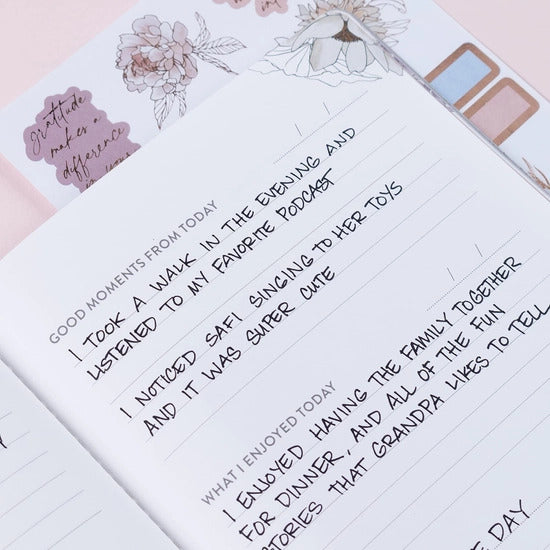 Gratitude
makes a
difference
/ /
GOOD MOMENTS FROM TODAY
I TOOK A WALK IN THE EVENING AND
LISTENED TO MY FAVORITE PODCAST
I NOTICED SAFI SINGING TO HER TOYS
AND IT WAS SUPER CUTE
/ /
WHAT I ENJOYED TODAY
I ENJOYED HAVING THE FAMILY TOGETHER
FOR DINNER, AND ALL OF THE FUN
STORIES THAT GRANDPA LIKES TO TELL
DAY